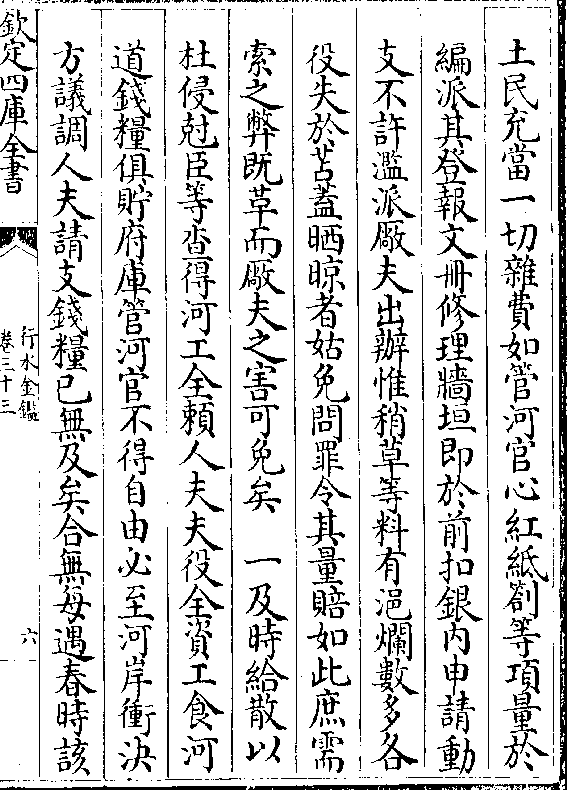 土民充當一切雜費如管河官心紅紙劄等項量於
編派其登報文冊修理牆垣即於前扣銀内申請動
支不許濫派厰夫出辦惟稍草等料有浥爛數多各
役失於苫蓋晒晾者姑免問罪令其量賠如此庶需
索之弊既革而厰夫之害可免矣　一及時給散以
杜侵尅臣等查得河工全頼人夫夫役全資工食河
道錢糧俱貯府庫管河官不得自由必至河岸衝決
方議調人夫請支錢糧已無及矣合無每遇春時該
欽定四庫全書
行水金鑑
卷三十三
六